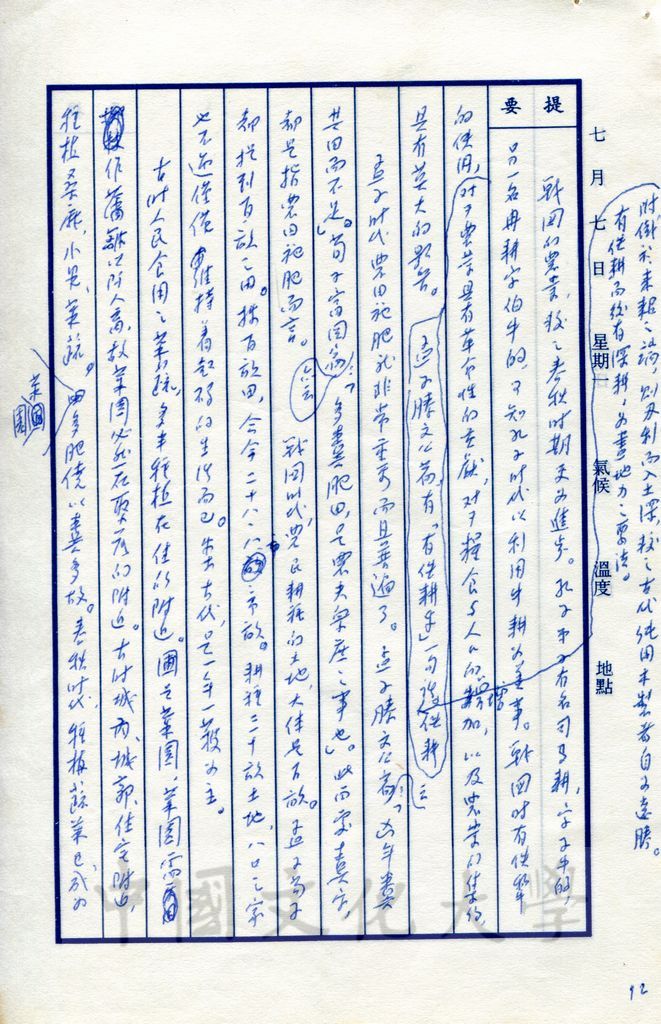 附鐵於耒耜之端，則用利而入土深，較之古代純用木製者自可遠勝。
有鐵耕而後有深耕，為盡地力之要法。
七月七日 星期 氣候 溫度 地點
提要
戰國的農業，較之春秋時期更為進步。孔子弟子有名司馬耕，字子牛的，
另一名冉耕字伯牛的，可知孔子時代以利用牛耕為美事。戰國時有鐵犂
的使用，對于農業具有革命性的貢獻，對于糧食與人口的增加，以及農業的集約
具有莫大的影響。
孟子滕文公篇，有「有鐵耕乎」一句，鐵耕
孟子時代，農田施肥就非常重要而且普遍了。孟子滕文公篇：「凶年糞
其田而不足」。荀子富國篇：「多糞肥田，是農夫眾庶之事也」。此兩處糞字，
都是指農田施肥而言。
戰國時代，農民耕種的土地，大体是百畝。孟子荀子
都提到百畝之田。按百畝田，合今二十八・八市畝。耕種二十畝土地，八口之家
也不過僅僅維持着起碼的生活而已。生古代，是一年一穫為主。
古時人民食用之菜蔬，多半種植在住的附近。圃是菜園，菜園需
作藩籬以防人畜，故菜園必然在聚居的附近。古時城內、城郭、住宅附近，
種植桑麻、小果、菜蔬。
菜園
肥饒以糞多故。春秋時代，種植蔬菜已成為
中國文化大學
92